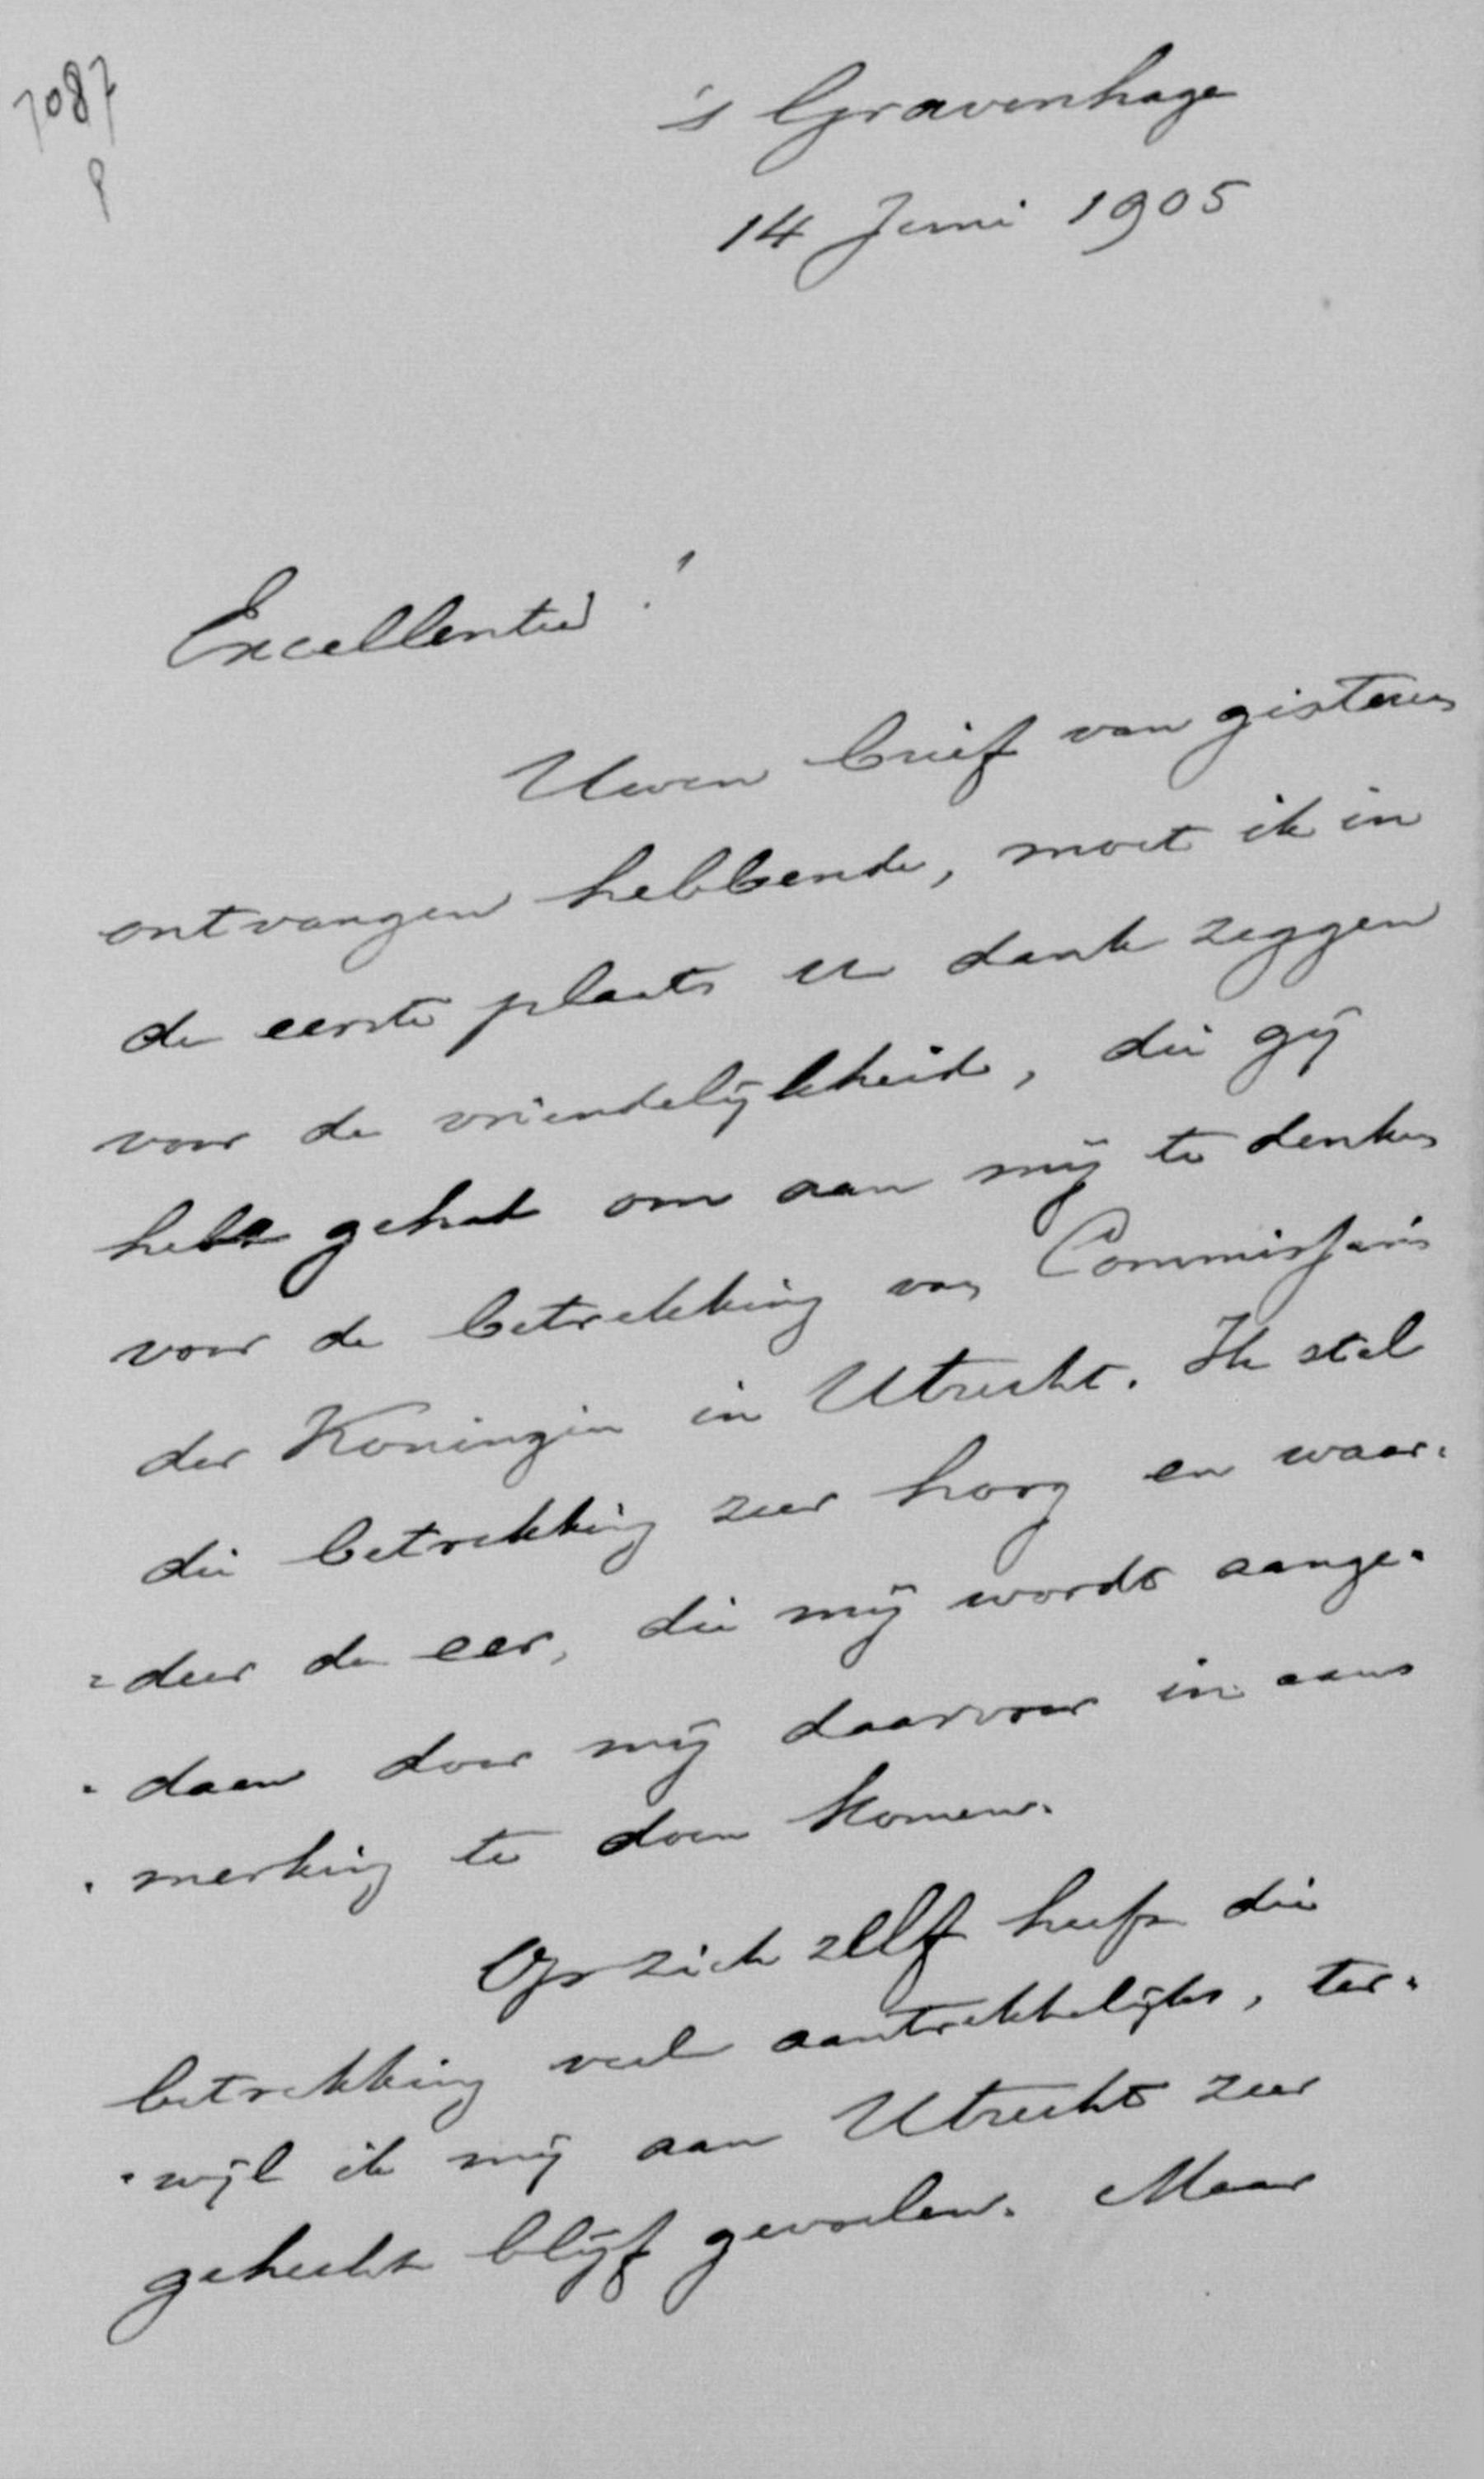 7087
's Gravenhage
14 Juni 1905
Excellentie!
Uwen brief van gisteren
ontvangen hebbende, moet ik in
de eerste plaats u dank zeggen
voor de vriendelijkheid, die gij
hebt gehad om aan mij te denken
voor de betrekking van Commissaris
der Koningin in Utrecht. Ik stel
die betrekking zeer hoog en waar-
=deer de eer, die mij wordt aange-
-daan door mij daarvoor in aan
-merking te doen komen.
Op zich zelf heeft die
betrekking veel aantrekkelijks, ter-
-wijl ik mij aan Utrecht zeer
gehecht blijf gevoelen. Maar